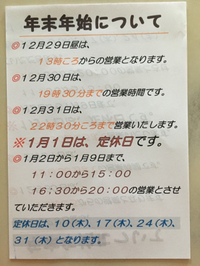 年末年始について
◎12月29日昼は、
13時ころからの営業となります。
◎12月30日は、
19時30分までの営業時間です。
◎12月31日は、
22時30分ころまで営業いたします。
※1月1日は、定休日です。
◎1月2日から1月9日まで、
11:00から15:00
16:30から20:00の営業とさせ
ていただきます。
定休日は、10(木)、17(木)、24(木)、
31(木)となります。